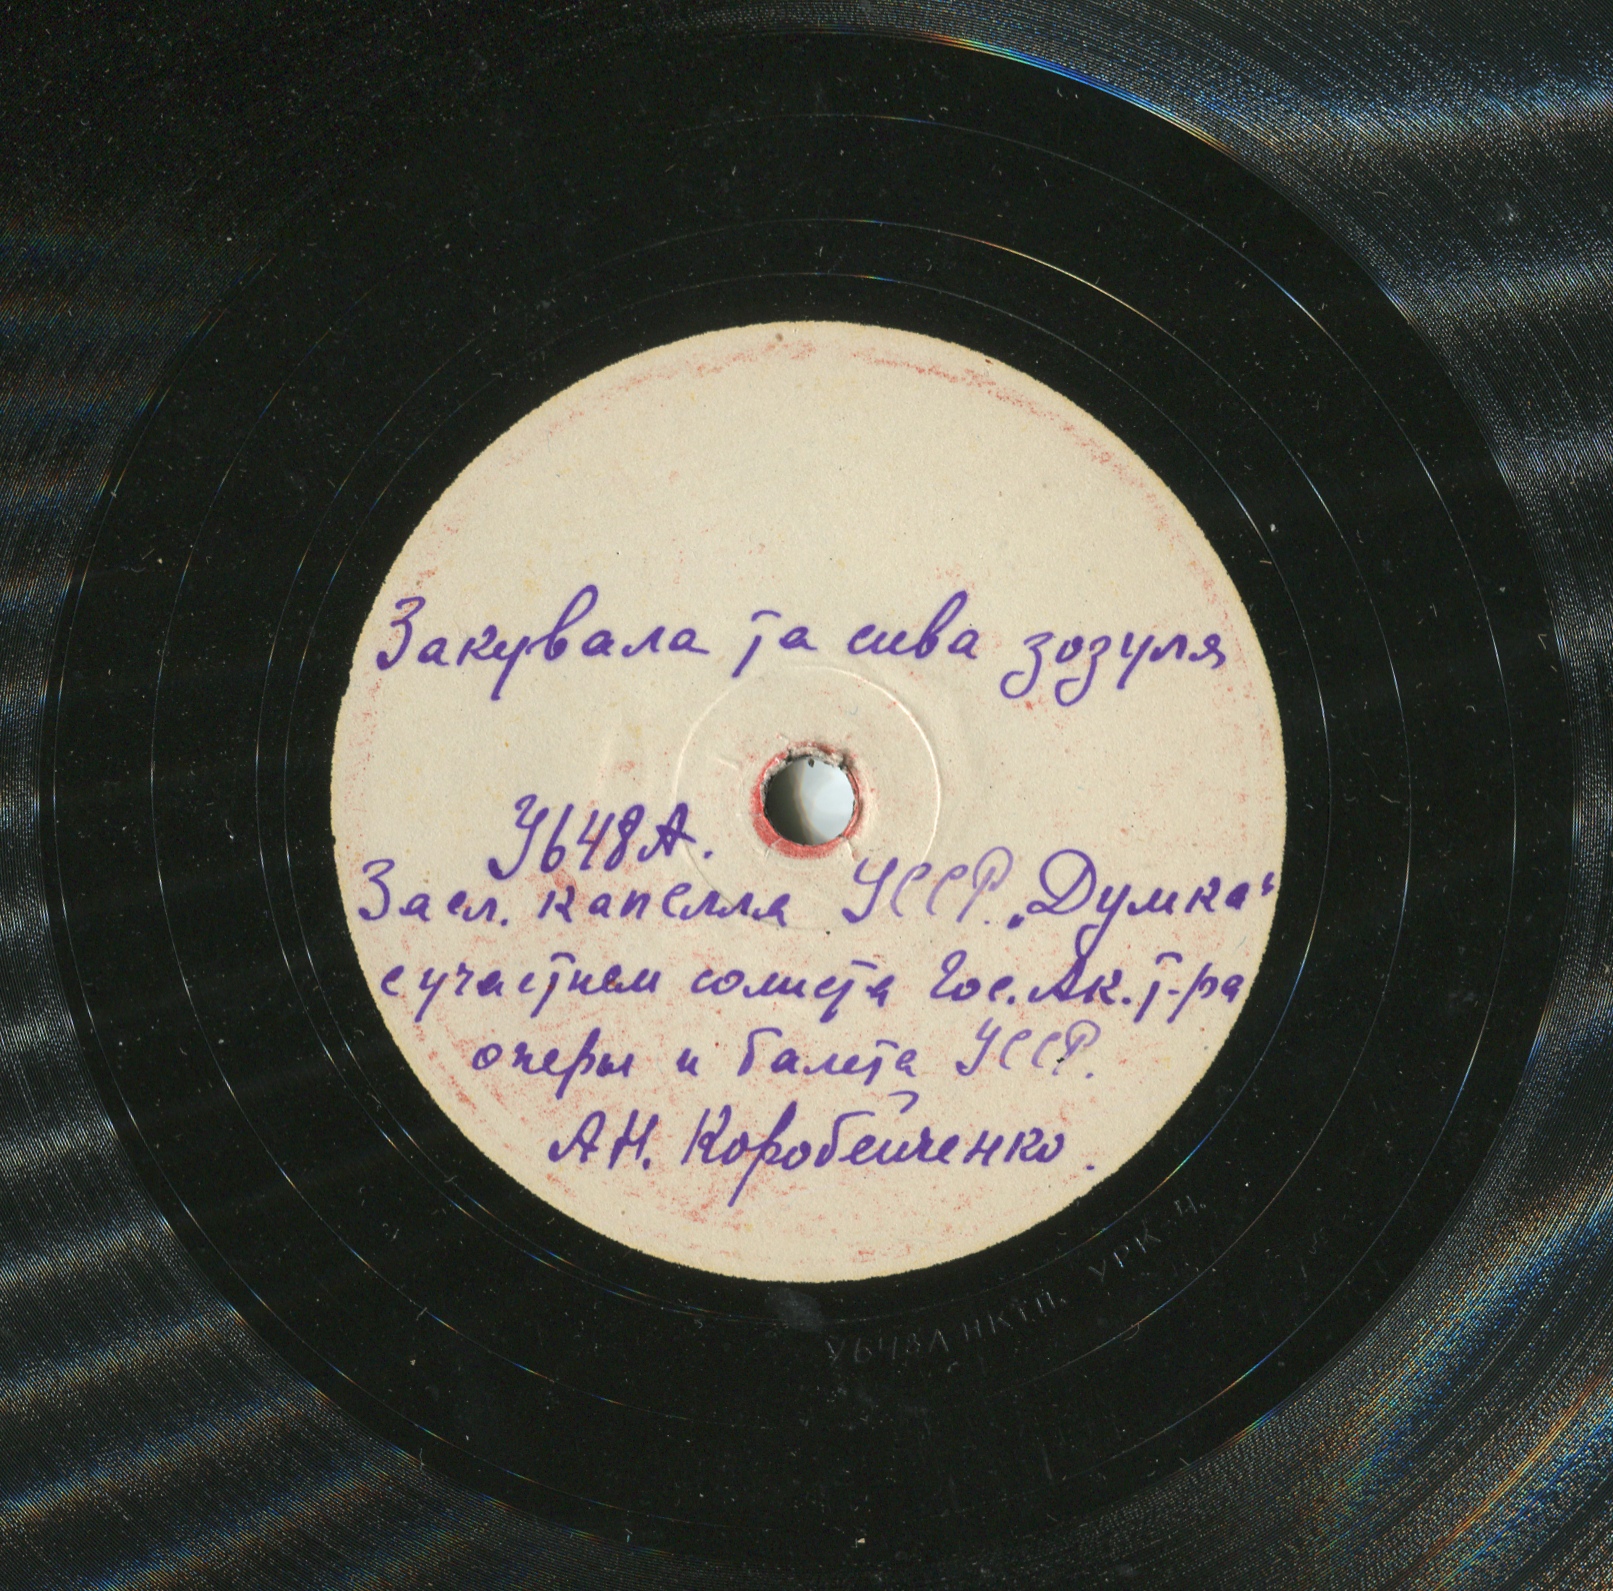 Закувала та сива зозуля
У648А.
Засл. капелла УССР. „Думка“
с участием солиста Гос. Ак. т-ра
оперы и балета УССР.
АН. Коробейченко.
У648А НКТП. УРК Ц.